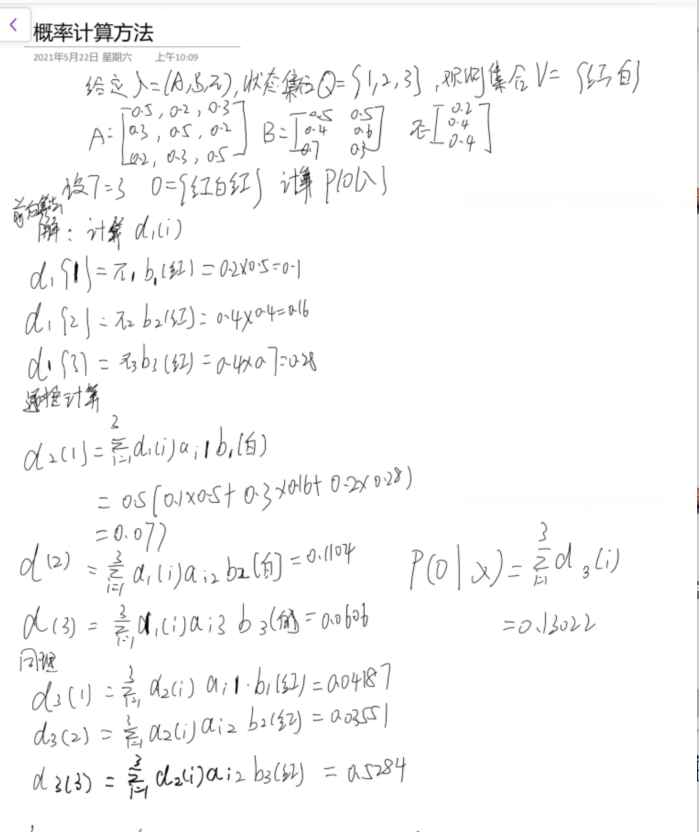 概率计算方法
2021年5月22日 星期六 上午10:09
给定λ=(A,B,π),状态集合Q={1,2,3},观测集合V={红,白}
A=[0.5, 0.2, 0.3 B=[0.5 0.5 π=[0.2
0.3, 0.5, 0.2 0.4 0.6 0.4
0.2, 0.3, 0.5] 0.7 0.3] 0.4]
设T=3 O={红白红} 计算P(O|λ)
解:计算α₁(i)
α₁{1}=π₁b₁(红)=0.2×0.5=0.1
α₁{2}=π₂b₂(红)=0.4×0.4=0.16
α₁{3)=π₃b₃(红)=0.4×0.7=0.28
递推计算
α₂(1)=∑³ᵢ₌₁α₁(i)aᵢ₁b₁(白)
=0.5(0.1×0.5+0.3×0.16+0.2×0.28)
=0.077
α(2)=∑³ᵢ₌₁α₁(i)aᵢ₂b₂(白)=0.1104
α(3)=∑³ᵢ₌₁α₁(i)aᵢ₃b₃(白)=0.0606
P(O|λ)=∑³ᵢ₌₁α₃(i)
=0.13022
同理
α₃(1)=∑³ᵢ₌₁α₂(i)aᵢ₁·b₁(红)=0.04187
α₃(2)=∑³ᵢ₌₁α₂(i)aᵢ₂b₂(红)=0.03551
α₃(3)=∑³ᵢ₌₁α₂(i)aᵢ₂b₃(红)=0.5284